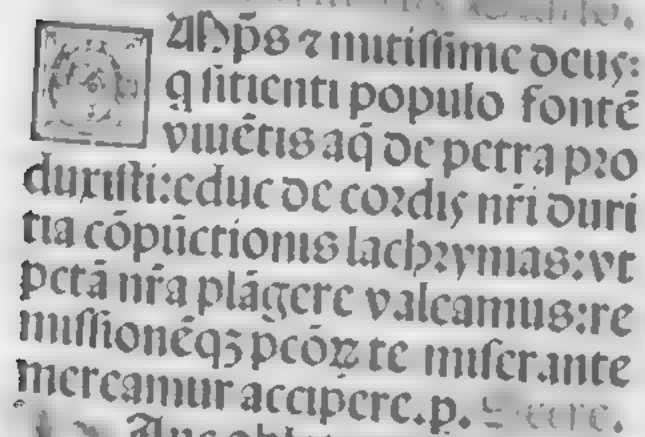 OMp̄s ⁊ mitissime deus:
q̄ sitienti populo fontē
viuētis aq̄ de petra pꝛo
duxisti: educ de coꝛdis nr̄i duri
tia cōpūctionis lachꝛymas: vt
pctā nr̄a plāgere valeamus: re
missionēqꝫ pctōꝝ te miserante
mereamur accipere. p.